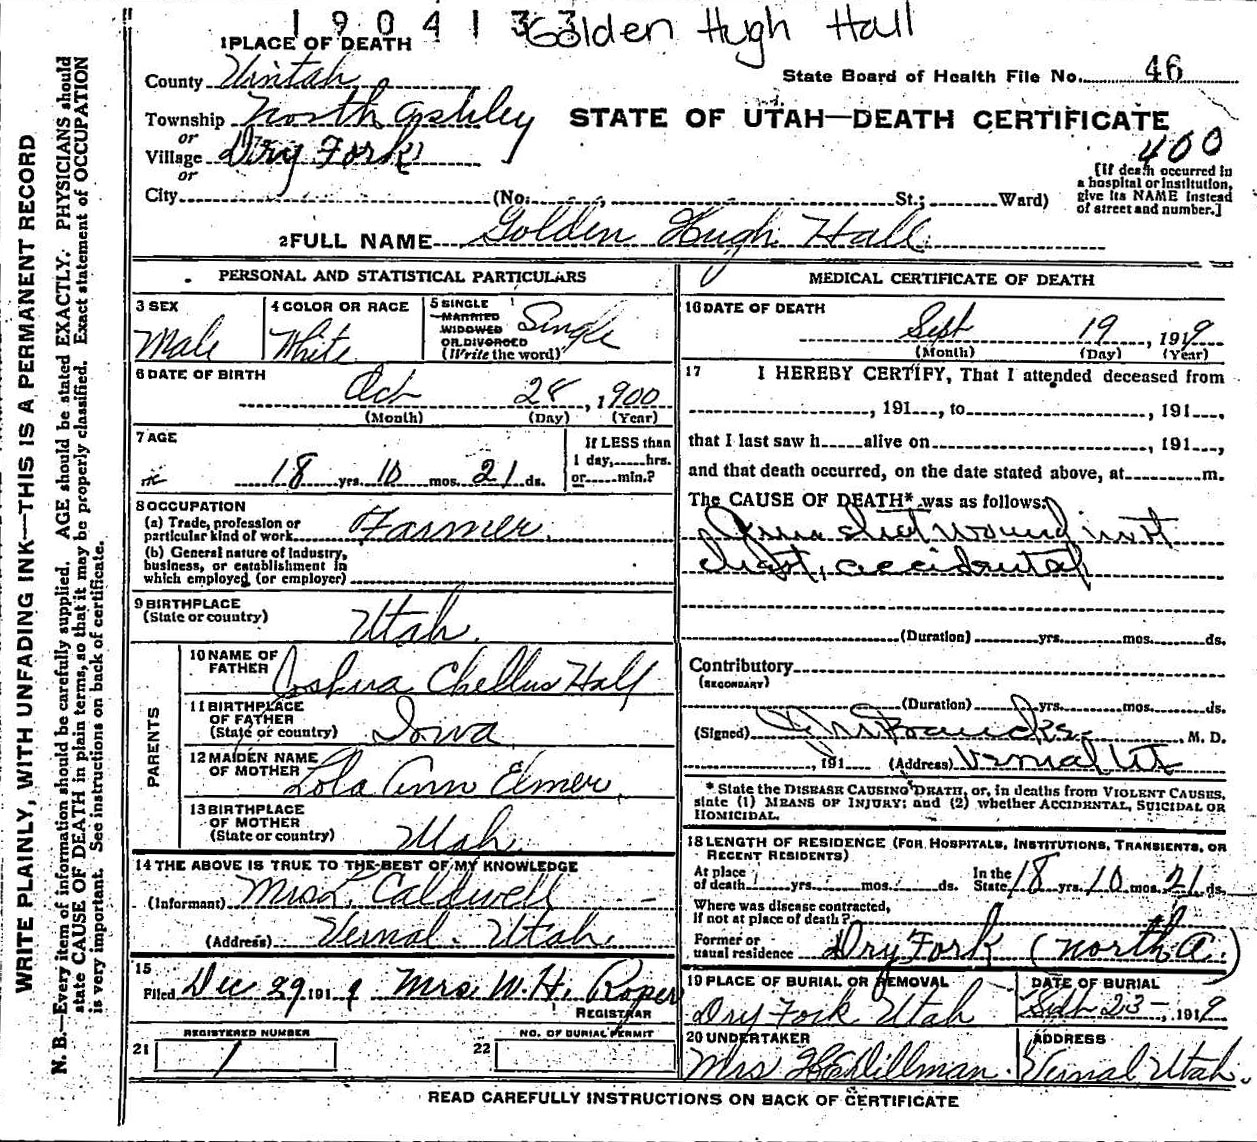 1904133 Golden Hugh Hall
1 PLACE OF DEATH
State Board of Health File No. 46
County Uintah
Township North Ashley
STATE OF UTAH—DEATH CERTIFICATE
or
Village Dry Fork
400
or
City (No. St.; Ward)
[If death occurred in
a hospital or institution,
give its NAME instead
of street and number.]
2 FULL NAME Golden Hugh Hall
WRITE PLAINLY, WITH UNFADING INK—THIS IS A PERMANENT RECORD
N. B.—Every item of information should be carefully supplied. AGE should be stated EXACTLY. PHYSICIANS should
state CAUSE OF DEATH in plain terms, so that it may be properly classified. Exact statement of OCCUPATION
is very important. See instructions on back of certificate.
PERSONAL AND STATISTICAL PARTICULARS
3 SEX
Male
4 COLOR OR RACE
White
5 SINGLE
MARRIED
WIDOWED
OR DIVORCED
(Write the word)
Single
6 DATE OF BIRTH
Oct 28, 1900
(Month) (Day) (Year)
7 AGE
18 yrs. 10 mos. 21 ds.
If LESS than
1 day, hrs.
or min.?
8 OCCUPATION
(a) Trade, profession or
particular kind of work Farmer
(b) General nature of industry,
business, or establishment in
which employed (or employer)
9 BIRTHPLACE
(State or country)
Utah
PARENTS
10 NAME OF
FATHER Joshua Chellus Hall
11 BIRTHPLACE
OF FATHER
(State or country) Iowa
12 MAIDEN NAME
OF MOTHER Lola Ann Elmer
13 BIRTHPLACE
OF MOTHER
(State or country) Utah
14 THE ABOVE IS TRUE TO THE BEST OF MY KNOWLEDGE
(Informant) Mrs L Caldwell
(Address) Vernal Utah
15
Filed Dec 29 1919 Mrs W. H. Roper
REGISTRAR
REGISTERED NUMBER
21 1
NO. OF BURIAL PERMIT
22
MEDICAL CERTIFICATE OF DEATH
16 DATE OF DEATH
Sept 19, 1919
(Month) (Day) (Year)
17 I HEREBY CERTIFY, That I attended deceased from
, 191 , to , 191 ,
that I last saw h alive on , 191 ,
and that death occurred, on the date stated above, at m.
The CAUSE OF DEATH* was as follows:
Gun shot wound in
chest, accidental
(Duration) yrs. mos. ds.
Contributory
(SECONDARY)
(Duration) yrs. mos. ds.
(Signed) M. D.
, 191 (Address) Vernal Ut
* State the DISEASE CAUSING DEATH, or, in deaths from VIOLENT CAUSES,
state (1) MEANS OF INJURY; and (2) whether ACCIDENTAL, SUICIDAL OR
HOMICIDAL.
18 LENGTH OF RESIDENCE (FOR HOSPITALS, INSTITUTIONS, TRANSIENTS, OR
RECENT RESIDENTS)
At place
of death yrs. mos. ds.
In the
State 18 yrs. 10 mos. 21 ds.
Where was disease contracted,
if not at place of death?
Former or
usual residence Dry Fork (North A.)
19 PLACE OF BURIAL OR REMOVAL
Dry Fork Utah
DATE OF BURIAL
Sept 23, 1919
20 UNDERTAKER
Mrs Dillman
ADDRESS
Vernal Utah.
READ CAREFULLY INSTRUCTIONS ON BACK OF CERTIFICATE